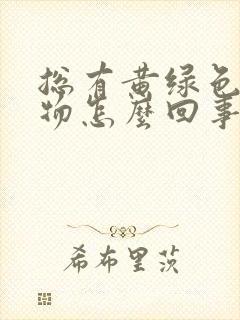 总有黄绿色
物怎麽回事
希布里茨